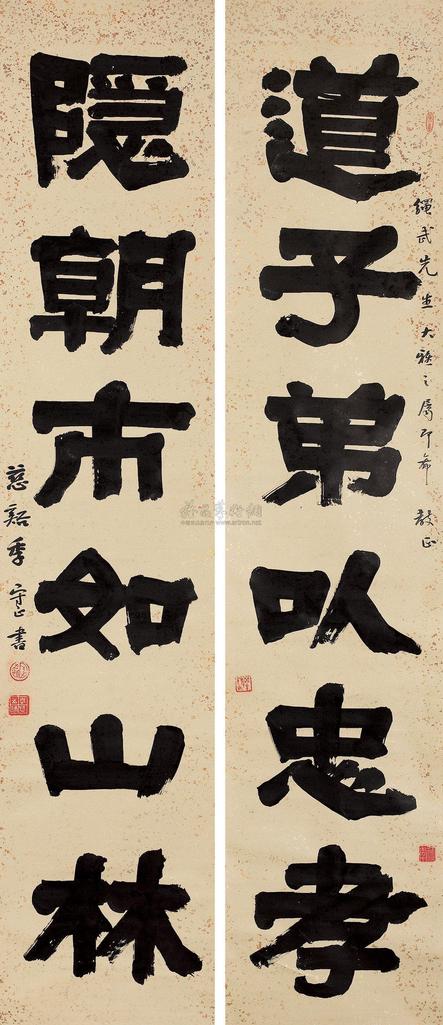 道子弟以忠孝
繩武先生大雅之屬即希 教正
隱朝市如山林
慈谿季守正書